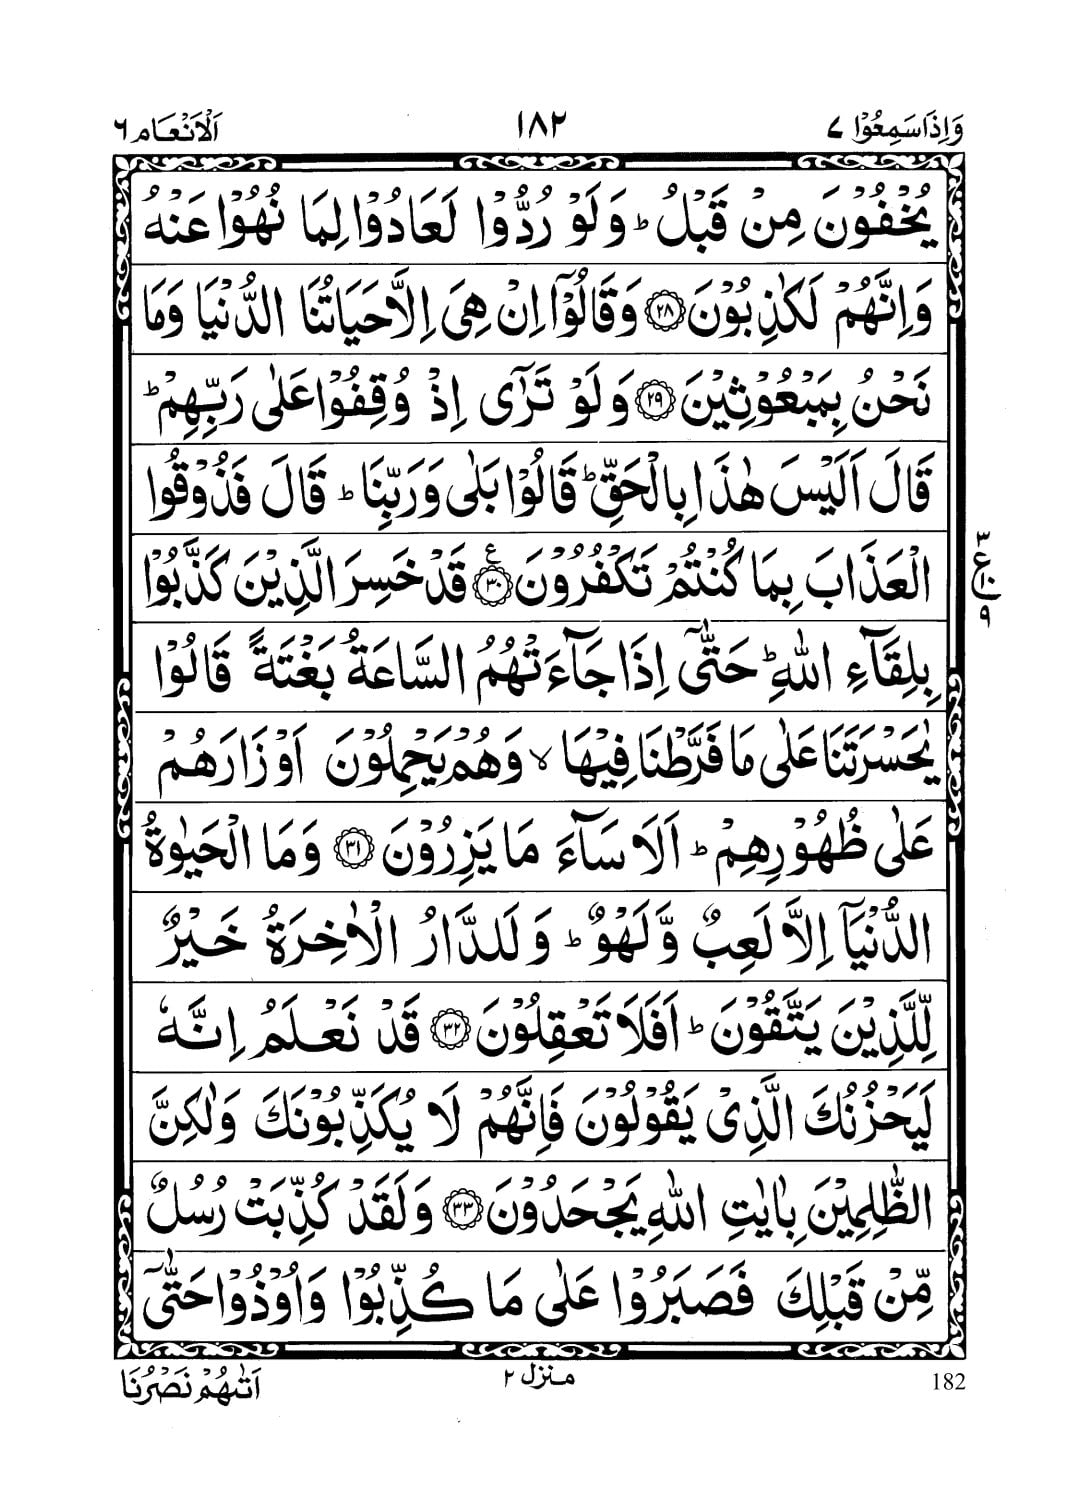 وَاِذَاسَمِعُوْا ٧
١٨٢
اَلْاَنْعَام ٦
يُخْفُوْنَ مِنْ قَبْلُ ؕ وَلَوْ رُدُّوْا لَعَادُوْا لِمَا نُهُوْا عَنْهُ
وَاِنَّهُمْ لَكٰذِبُوْنَ ۝٢٨ وَقَالُوْۤا اِنْ هِىَ اِلَّا حَيَاتُنَا الدُّنْيَا وَمَا
نَحْنُ بِمَبْعُوْثِيْنَ ۝٢٩ وَلَوْ تَرٰۤى اِذْ وُقِفُوْا عَلٰى رَبِّهِمْ ؕ
قَالَ اَلَيْسَ هٰذَا بِالْحَقِّ ؕ قَالُوْا بَلٰى وَرَبِّنَا ؕ قَالَ فَذُوْقُوا
الْعَذَابَ بِمَا كُنْتُمْ تَكْفُرُوْنَ ۝٣٠ ع قَدْ خَسِرَ الَّذِيْنَ كَذَّبُوْا
٣ ع ١٠ ٩
بِلِقَآءِ اللّٰهِ ؕ حَتّٰۤى اِذَا جَآءَتْهُمُ السَّاعَةُ بَغْتَةً قَالُوْا
يٰحَسْرَتَنَا عَلٰى مَا فَرَّطْنَا فِيْهَا ۙ وَهُمْ يَحْمِلُوْنَ اَوْزَارَهُمْ
عَلٰى ظُهُوْرِهِمْ ؕ اَلَا سَآءَ مَا يَزِرُوْنَ ۝٣١ وَمَا الْحَيٰوةُ
الدُّنْيَاۤ اِلَّا لَعِبٌ وَّلَهْوٌ ؕ وَلَلدَّارُ الْاٰخِرَةُ خَيْرٌ
لِّلَّذِيْنَ يَتَّقُوْنَ ؕ اَفَلَا تَعْقِلُوْنَ ۝٣٢ قَدْ نَعْلَمُ اِنَّهٗ
لَيَحْزُنُكَ الَّذِىْ يَقُوْلُوْنَ فَاِنَّهُمْ لَا يُكَذِّبُوْنَكَ وَلٰكِنَّ
الظّٰلِمِيْنَ بِاٰيٰتِ اللّٰهِ يَجْحَدُوْنَ ۝٣٣ وَلَقَدْ كُذِّبَتْ رُسُلٌ
مِّنْ قَبْلِكَ فَصَبَرُوْا عَلٰى مَا كُذِّبُوْا وَاُوْذُوْا حَتّٰۤى
اَتٰىهُمْ نَصْرُنَا
منزل ٢
182